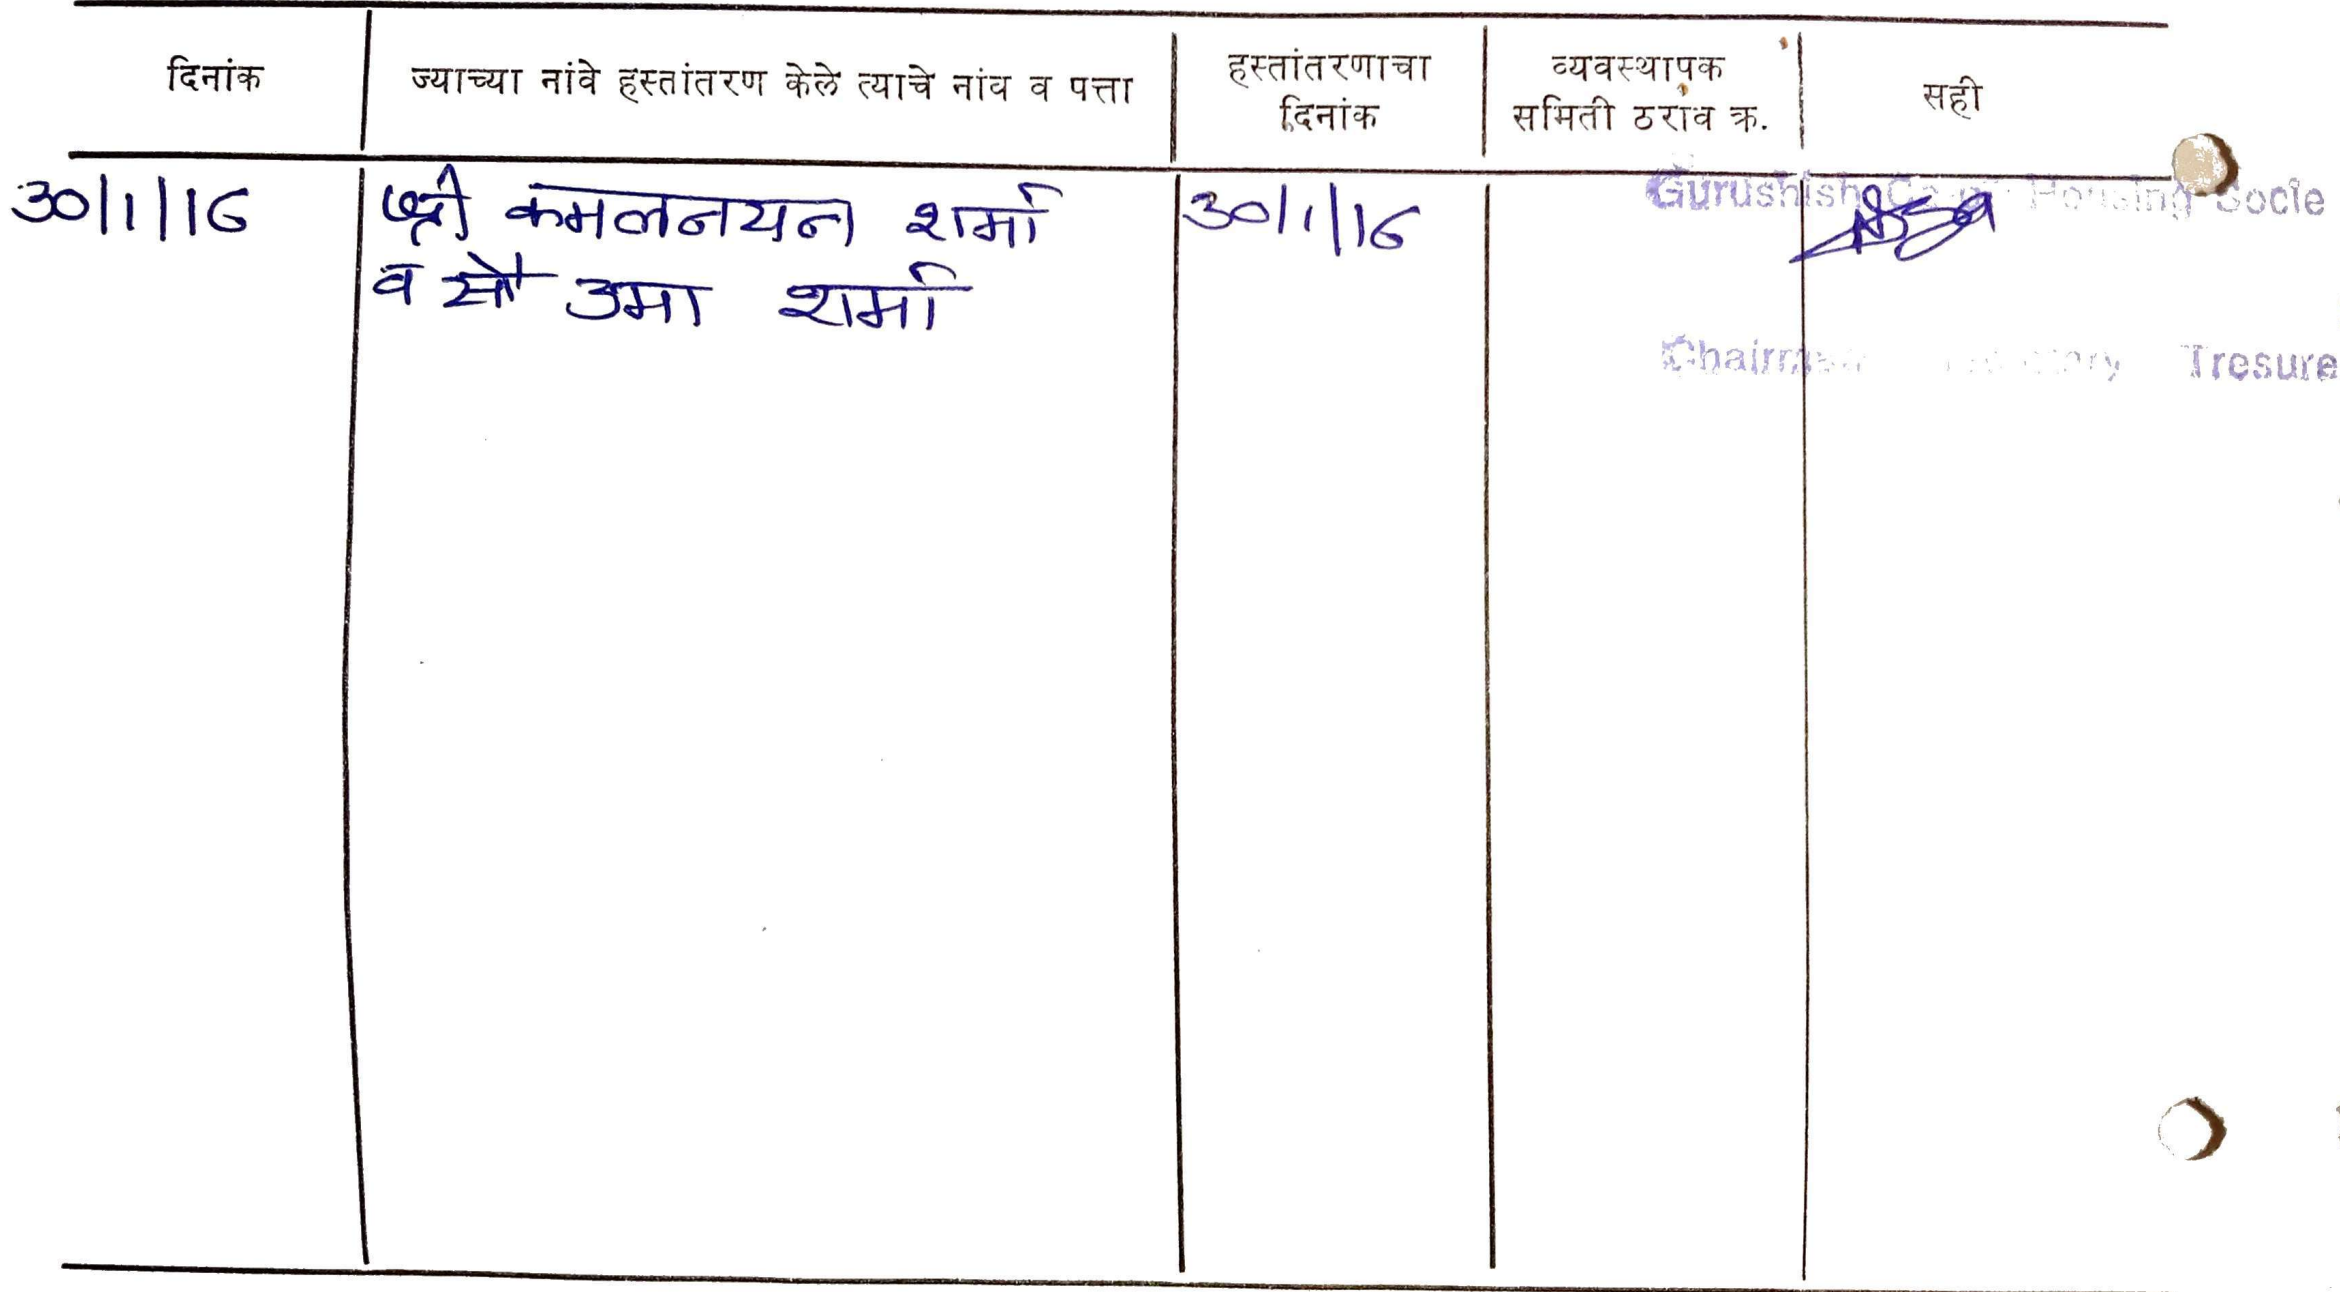 दिनांक
ज्याच्या नांवे हस्तांतरण केले त्याचे नांव व पत्ता
हस्तांतरणाचा
दिनांक
व्यवस्थापक
समिती ठराव क्र.
सही
30/1/16
श्री कमलनयन शर्मा
व सौ उमा शर्मा
30/1/16
Gurushish Housing Socie
Chairman Tresure